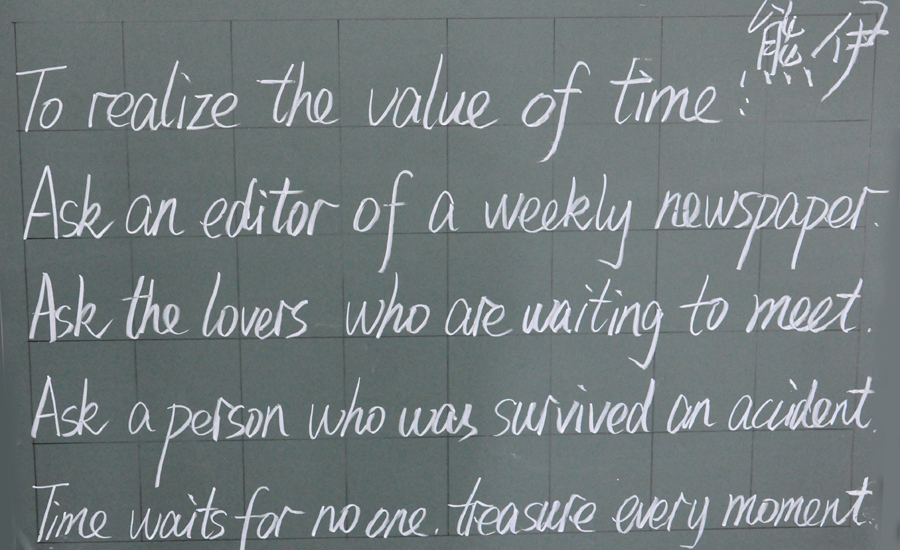 熊伊
To realize the value of time:
Ask an editor of a weekly newspaper.
Ask the lovers who are waiting to meet.
Ask a person who was survived an accident.
Time waits for no one. treasure every moment.